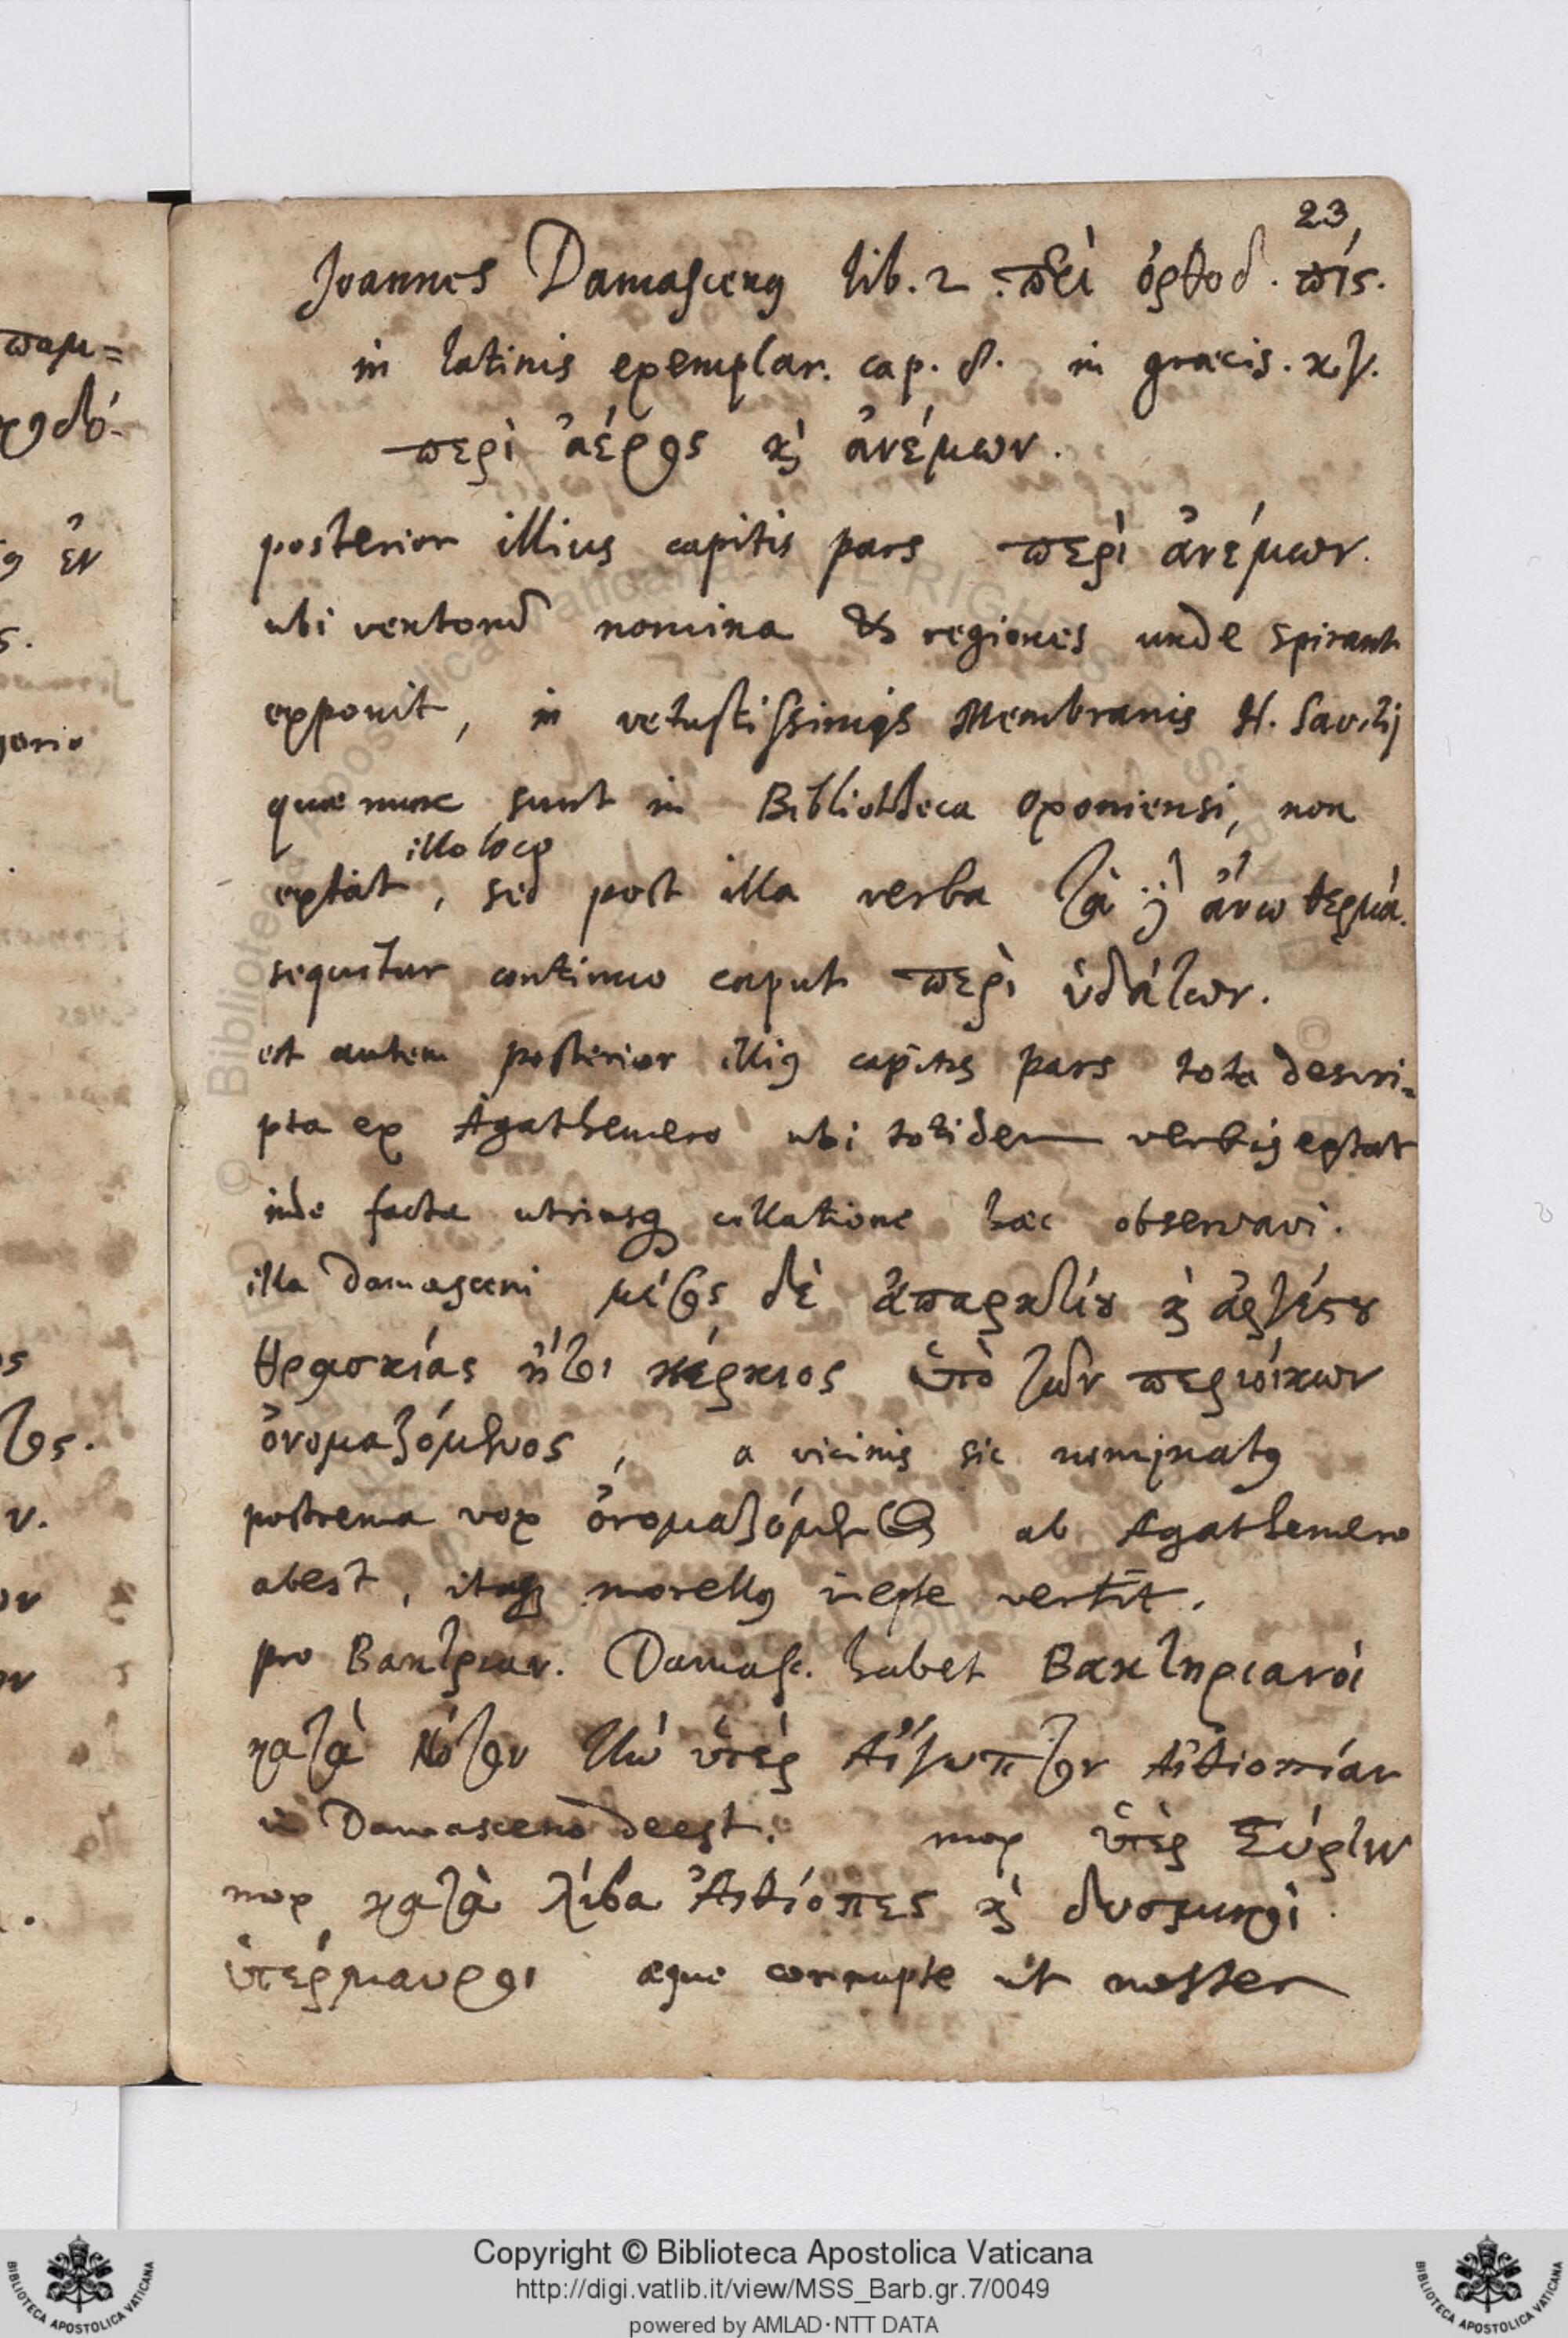 23,
Joannes Damascenꝰ lib. 2 περὶ ὀρθοδ. πίς.
in latinis exemplar. cap. 8. in græcis. κγ.
περὶ ἀέρος κὶ ἀνέμων.
posterior illius capitis pars περὶ ἀνέμων.
ubi ventorū nomina & regiones unde spirant
exponit, in vetustissimis Membranis H. Savilij
quæ nunc sunt in Bibliotheca Oxoniensi, non
illo loco
extat, sed post illa verba τὰ ἄνω θερμά.
sequitur continuo caput περὶ ὑδάτων.
est autem posterior illiꝰ capitis pars tota descri-
pta ex Agathemero ubi totidem verbis extat
inde facta utriusqꝫ collatione hæc observavi.
illa Damasceni μέσος δὲ ἀπαρκτίου κὶ ἀργέςου
θρασκίας ἤτοι κέρκιος ὑπὸ τῶν περιοίκων
ὀνομαζόμενος, a vicinis sic nominatꝰ
postrema vox ὀνομαζόμενος ab Agathemero
abest, itaqꝫ morellꝰ inepte vertit.
pro Βακτριαν. Damasc. habet Βακτηριανοὶ
κατὰ Νότον τὴν ὑπὲρ Αἴγυπτον Αἰθιοπίαν
in Damasceno deest. mox ὑπὲρ Σύρτιν
mox κατὰ λίβα Ἀιθίοπες κὶ δυσμικοὶ
ὑπέρμαυροι æque corrupte ut noster
Copyright © Biblioteca Apostolica Vaticana
http://digi.vatlib.it/view/MSS_Barb.gr.7/0049
powered by AMLAD·NTT DATA